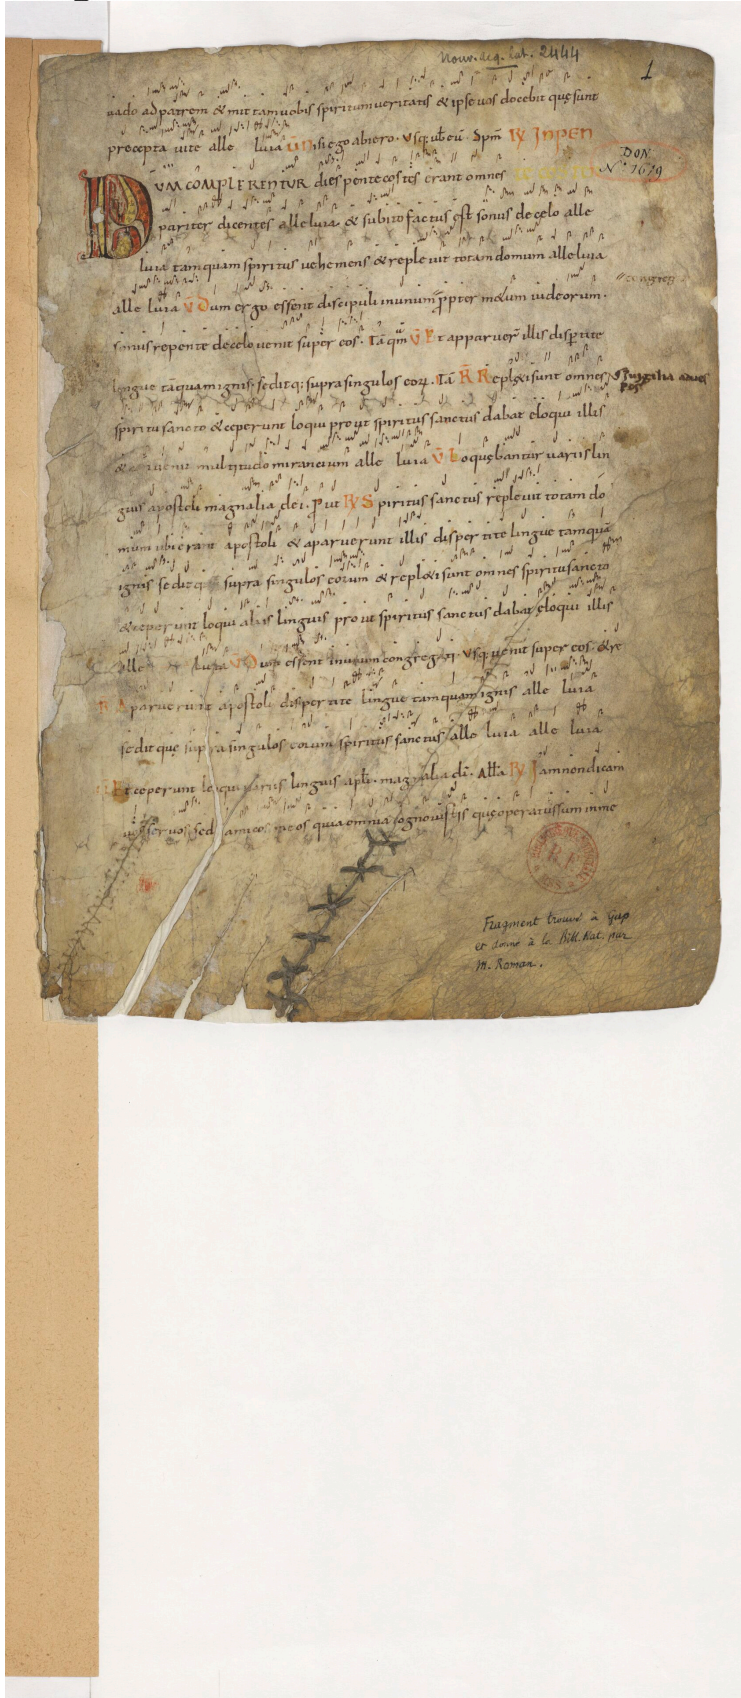 Nouv. acq. lat. 2444
1
uado ad patrem & mittam uobis spiritum ueritatis & ipse uos docebit quę sunt
precepta uite alle luia V̄ Nisi ego abiero. Usq; ubi eū. Sp̄m R̄ IN PEN
DON
N.º 1619
DUM COMPLERENTUR dies pentecostes erant omnes
pariter dicentes alleluia & subito factus est sonus de celo alle
luia tamquam spiritus uehemens & repleuit totam domum alleluia
alle luia V̄ Dum ergo essent discipuli in unum ꝓpter m&um iudeorum.
sonus repente de celo uenit super eos. Tāqm̄ V̄ Et apparuer̄ illis disp̄tite
lingue tāquam ignis seditq; supra singulos eoꝝ. Tā R̄ Repl&i sunt omnes
spiritu sancto & ceperunt loqui prout spiritus sanctus dabat eloqui illis
& conuenit multitudo mirancium alle luia V̄ Loquębantur uariis lin
guis apostoli magnalia dei. Prut R̄ Spiritus sanctus repleuit totam do
mum ubi erant apostoli & aparuerunt illis dispertite lingue tamquā
ignis seditq; supra singulos eorum & repl&i sunt omnes spiritu sancto
& ceperunt loqui aliis linguis prout spiritus sanctus dabat eloqui illis
alle luia V̄ Dum essent in unum congregati. Usq; uenit super eos. & re
R̄ Aparuerunt apostoli dispertite lingue tamquam ignis alle luia
sedit quę supra singulos eorum spiritus sanctus alle luia alle luia
V̄ Et ceperunt loqui uariis linguis apl̄i. magnalia dī. All̄a R̄ Iam non dicam
uos seruos sed amicos meos quia omnia cognouistis quę operatus sum in me
R.F.
Fragment trouvé à Gap
et donné à la Bibl. Nat. par
M. Roman.